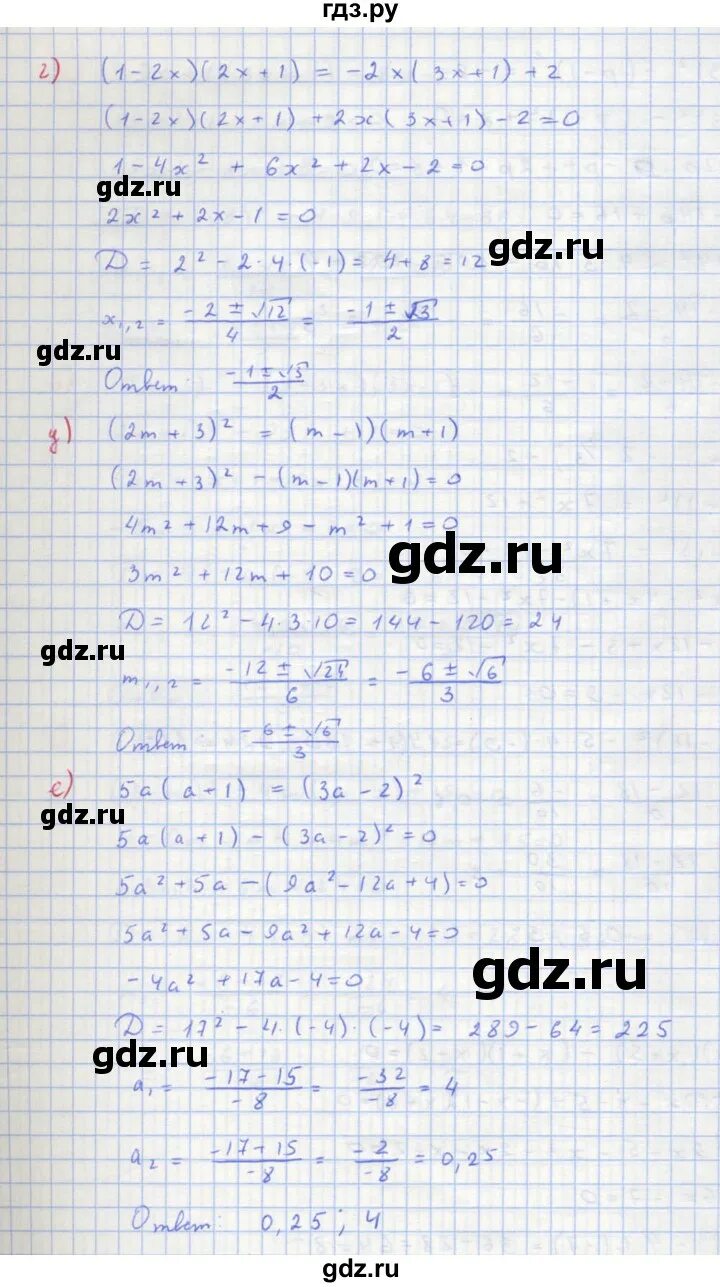 гдз.ру
г) (1-2x)(2x+1) = -2x(3x+1)+2
(1-2x)(2x+1)+2x(3x+1)-2=0
1-4x²+6x²+2x-2=0
gdz.ru
2x²+2x-1=0
D = 2²-2·4·(-1)= 4+8=12
gdz.ru
x₁,₂ = (-2±√12)/4 = (-1±√3)/2
gdz.ru
Ответ: (-1±√3)/2
у) (2m+3)² = (m-1)(m+1)
(2m+3)²-(m-1)(m+1)=0
4m²+12m+9-m²+1=0
gdz.ru
3m²+12m+10=0
D = 12²-4·3·10=144-120=24
gdz.ru
m₁,₂ = (-12±√24)/6 = (-6±√6)/3
Ответ: (-6±√6)/3
е) 5a(a+1) = (3a-2)²
gdz.ru
5a(a+1)-(3a-2)²=0
5a²+5a-(9a²-12a+4)=0
5a²+5a-9a²+12a-4=0
gdz.ru
-4a²+17a-4=0
D = 17²-4·(-4)·(-4)= 289-64=225
gdz.ru
a₁ = (-17-15)/-8 = -32/-8 = 4
a₂ = (-17+15)/-8 = -2/-8 = 0,25
Ответ: 0,25; 4
gdz.ru